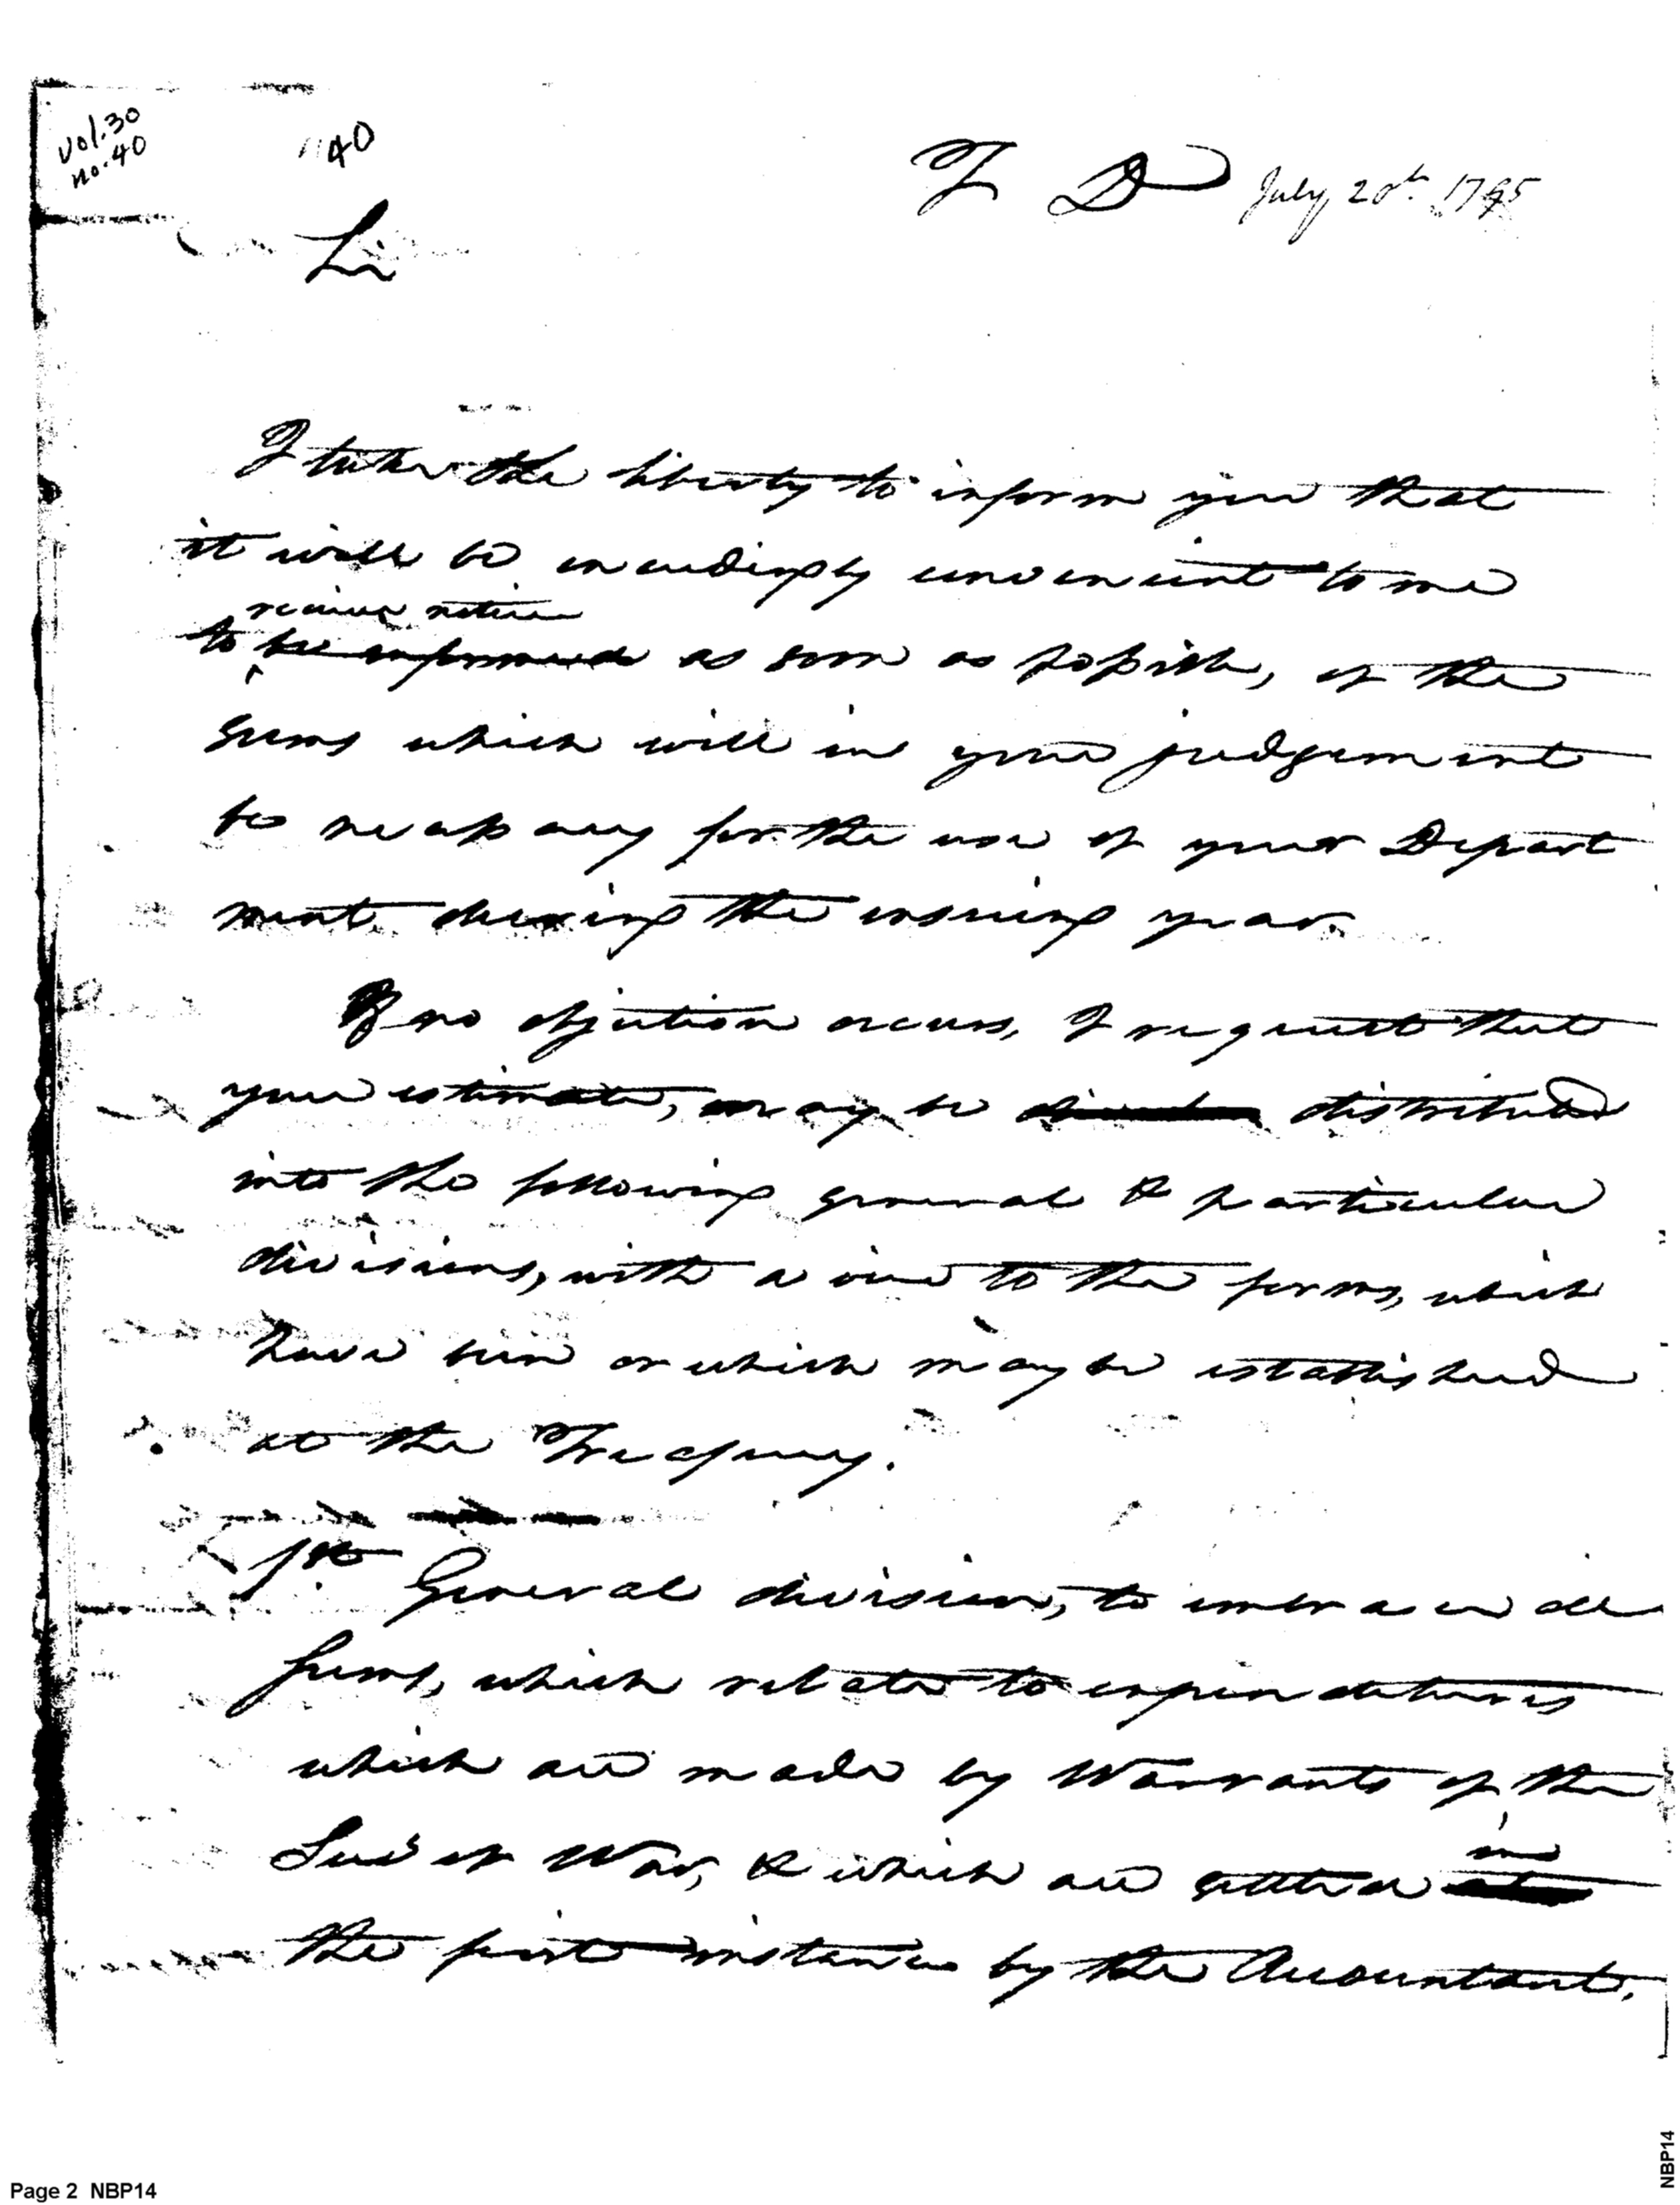 Vol. 30
no. 40
40
T D July 20th. 1795
Sir
I take the liberty to inform you that
it will be exceedingly convenient to me
receive notice
to be informed as soon as possible, of the
sums which will in your judgement
be necessary for the use of your Depart
ment during the ensuing year.
If no objection occurs, I request that
your estimate, may be distributed
into the following general & particular
divisions, with a view to the forms, which
have been or which may be established
at the Treasury.
1st General division, to embrace all
sums, which relate to expenditures
which are made by Warrants of the
in
Secy of War, & which are settled at
the first instance by the Accountant.
Page 2 NBP14
NBP14